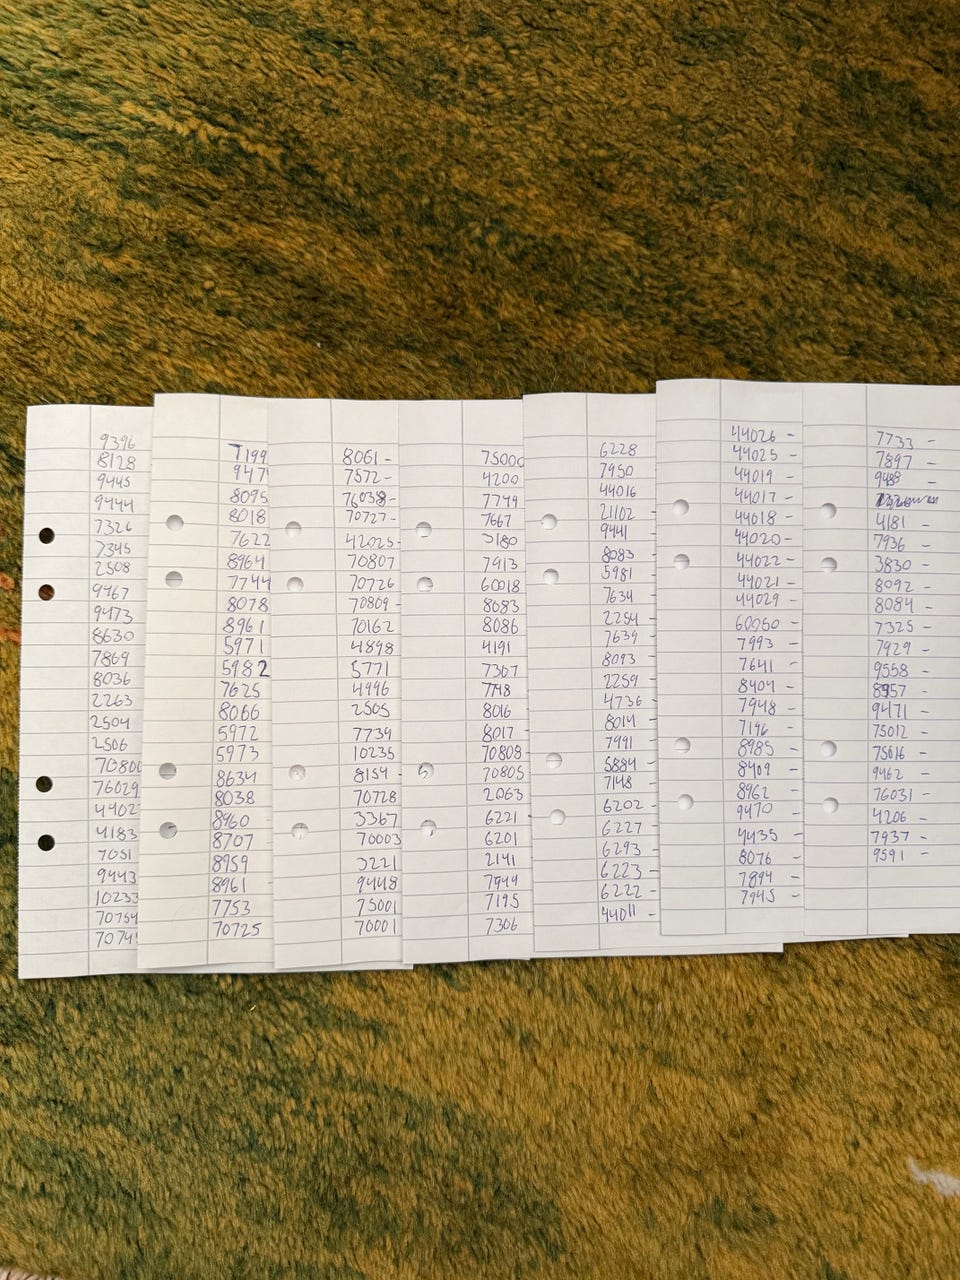 9396
8128
9445
9444
7326
7345
2508
9467
9473
8630
7869
8036
2263
2504
2506
7080
76029
4402
4183
7051
9443
10233
70754
7074
7199
947
8095
8018
7622
8964
7744
8078
8961
5971
5982
7625
8066
5972
5973
8634
8038
8960
8707
8959
8961
7753
70725
8061 -
7572 -
76038 -
70727 -
42025 -
70807
70726
70809 -
70162
4898
5771
4996
2505
7734
10235
8154 -
70728
3367
70003
3221
9448
75001
70001
75000
4200
7749
7667
5180
7913
60018
8083
8086
4191
7367
7748
8016
8017 -
70808 -
70805
2063
6221
6201
2141
7949
7195
7306
6228
7950
44016
21102
9441
8083
5981
7634
2254
7639
8093
2259
4736
8014
7991
5884
7148
6202 -
6227 -
6293 -
6223 -
6222 -
44011 -
44026 -
44025 -
44019 -
44017 -
44018 -
44020 -
44022 -
44021 -
44029 -
60050 -
7993 -
7641 -
8404 -
7948 -
7196 -
8985 -
8409 -
8962 -
9470 -
4435 -
8076 -
7894 -
7945 -
7733 -
7897 -
9488 -
4181 -
7936 -
3830 -
8092 -
8084 -
7325 -
7929 -
9558 -
8957 -
9471 -
75012 -
75016 -
9462 -
76031 -
4206 -
7937 -
9591 -